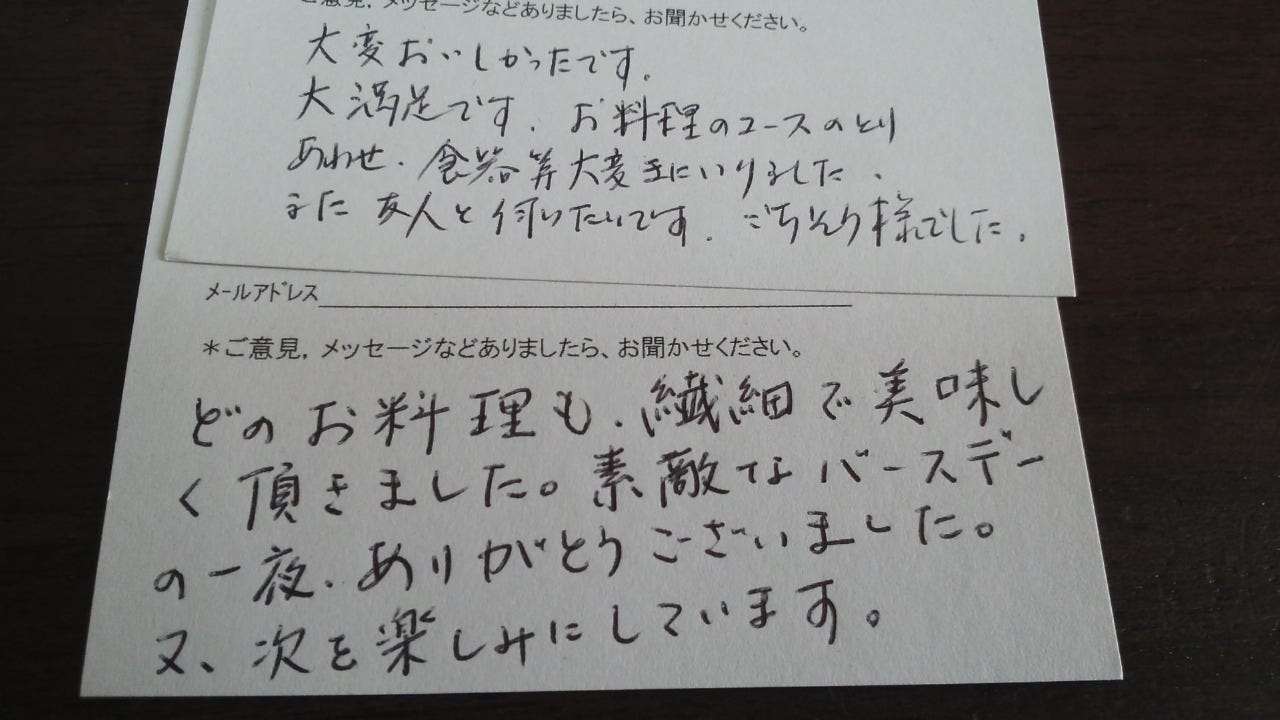 ご意見，メッセージなどありましたら、お聞かせください。
大変おいしかったです．
大満足です．お料理のコースのとり
あわせ．食器等大変きにいりました．
また友人と伺いたいです．ごちそう様でした．
メールアドレス
＊ご意見，メッセージなどありましたら、お聞かせください。
どのお料理も、繊細で美味し
く頂きました。素敵なバースデー
の一夜、ありがとうございました。
又、次を楽しみにしています。